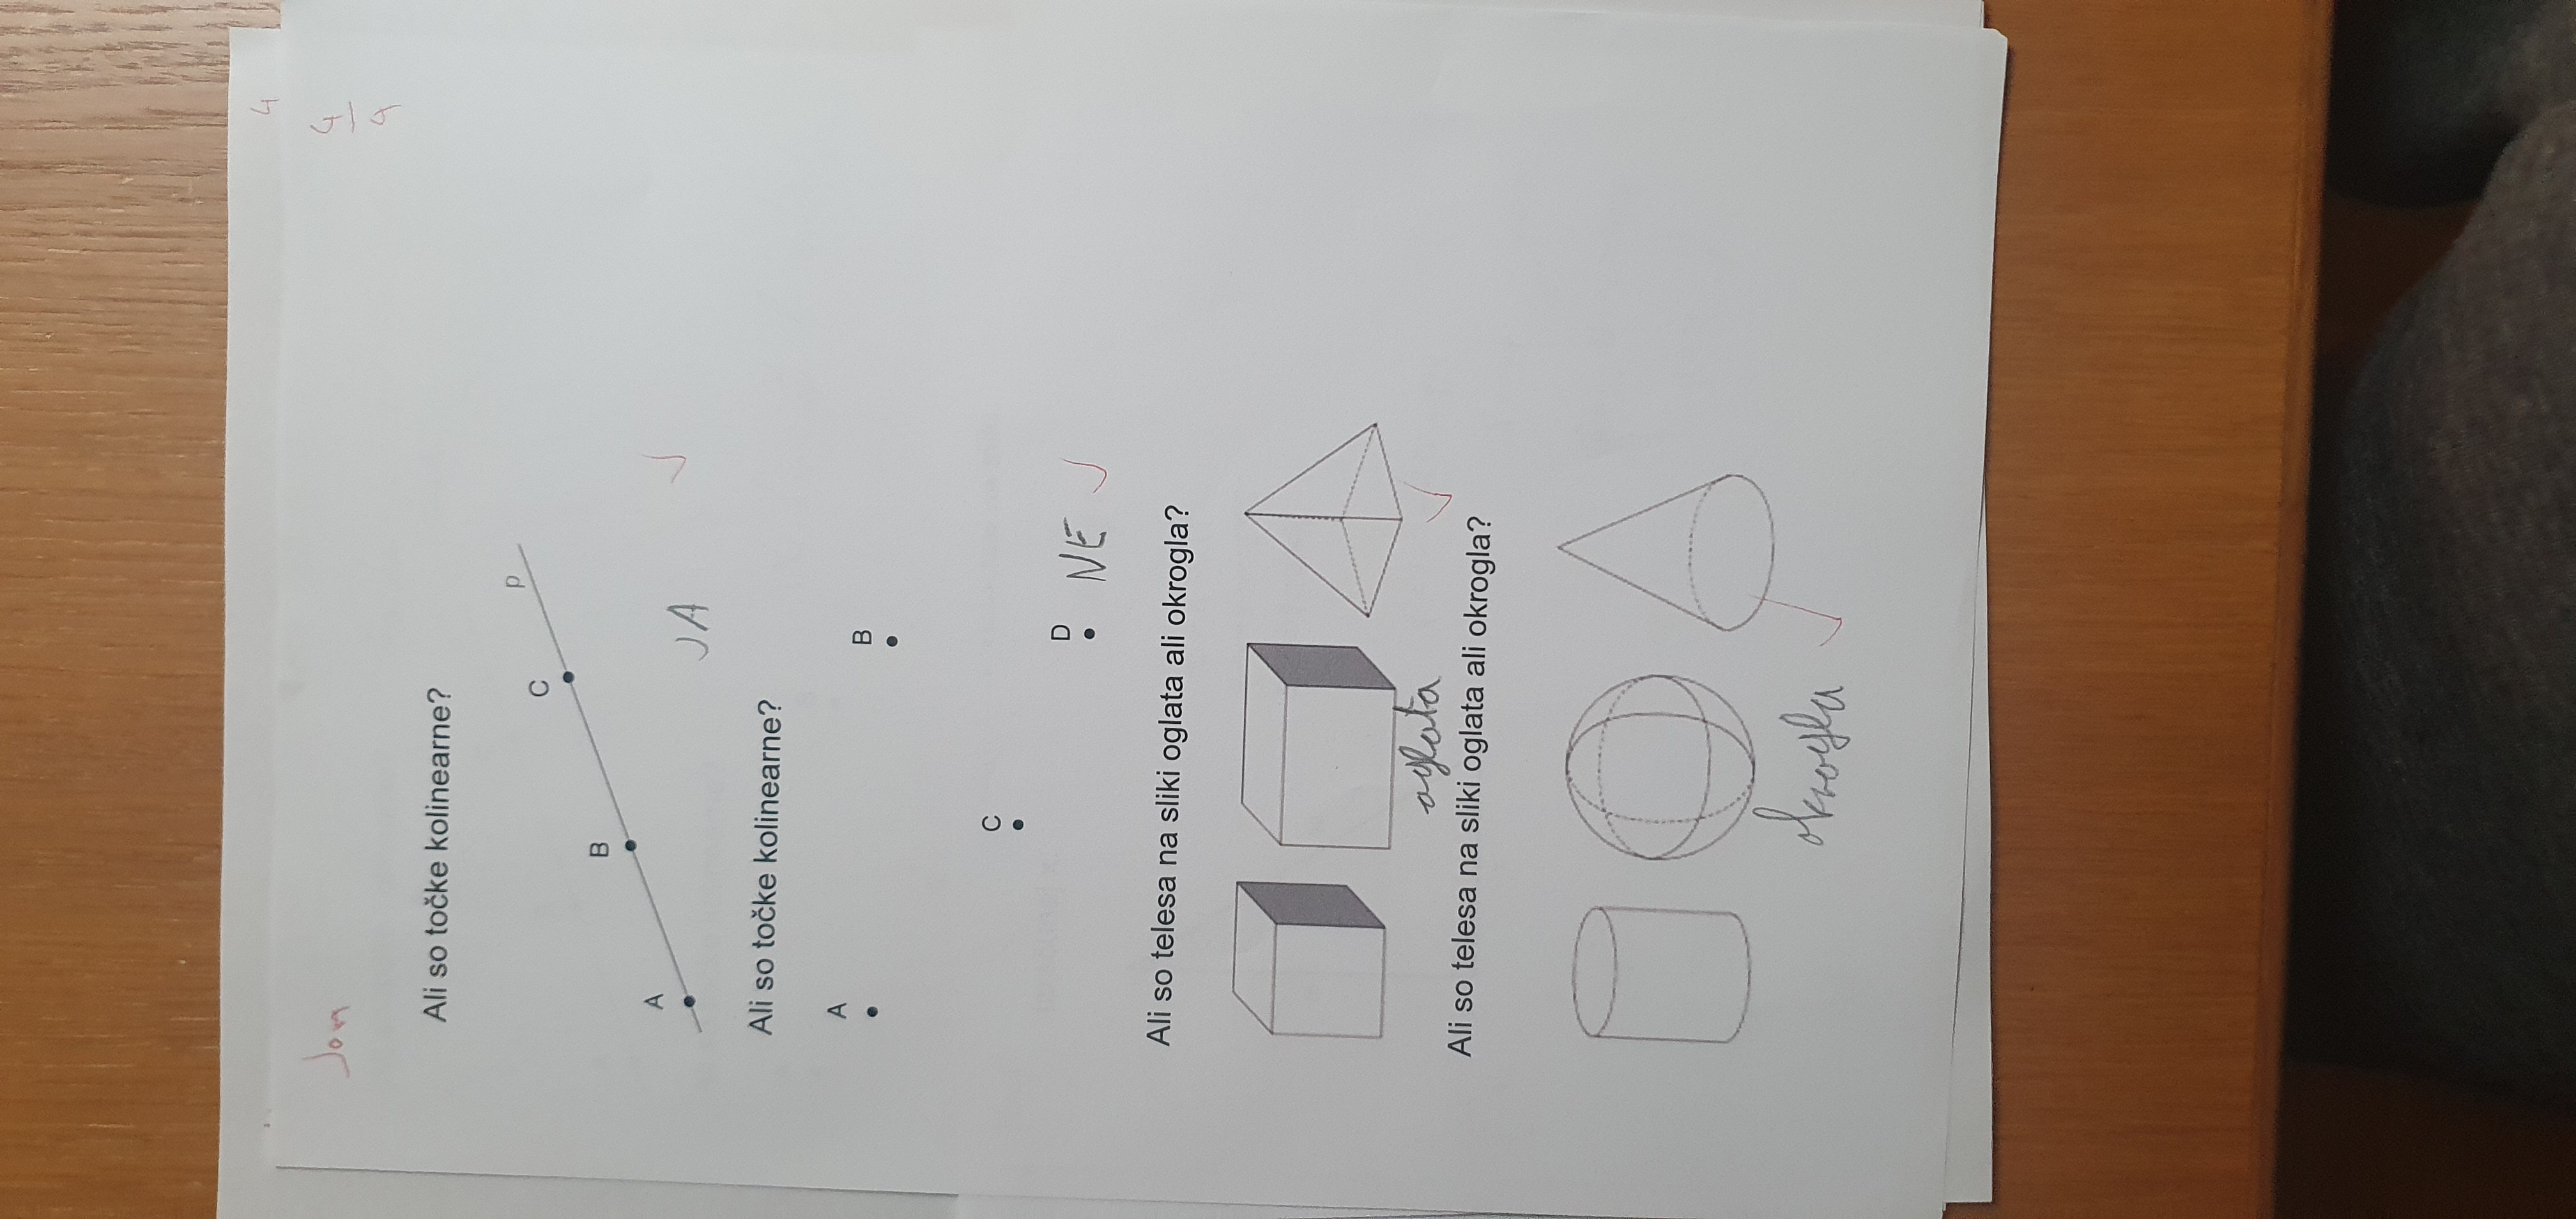 4
Jon
4
4
Ali so točke kolinearne?
p
C
B
A
JA
Ali so točke kolinearne?
A
B
C
D
NE
Ali so telesa na sliki oglata ali okrogla?
oglata
Ali so telesa na sliki oglata ali okrogla?
okrogla